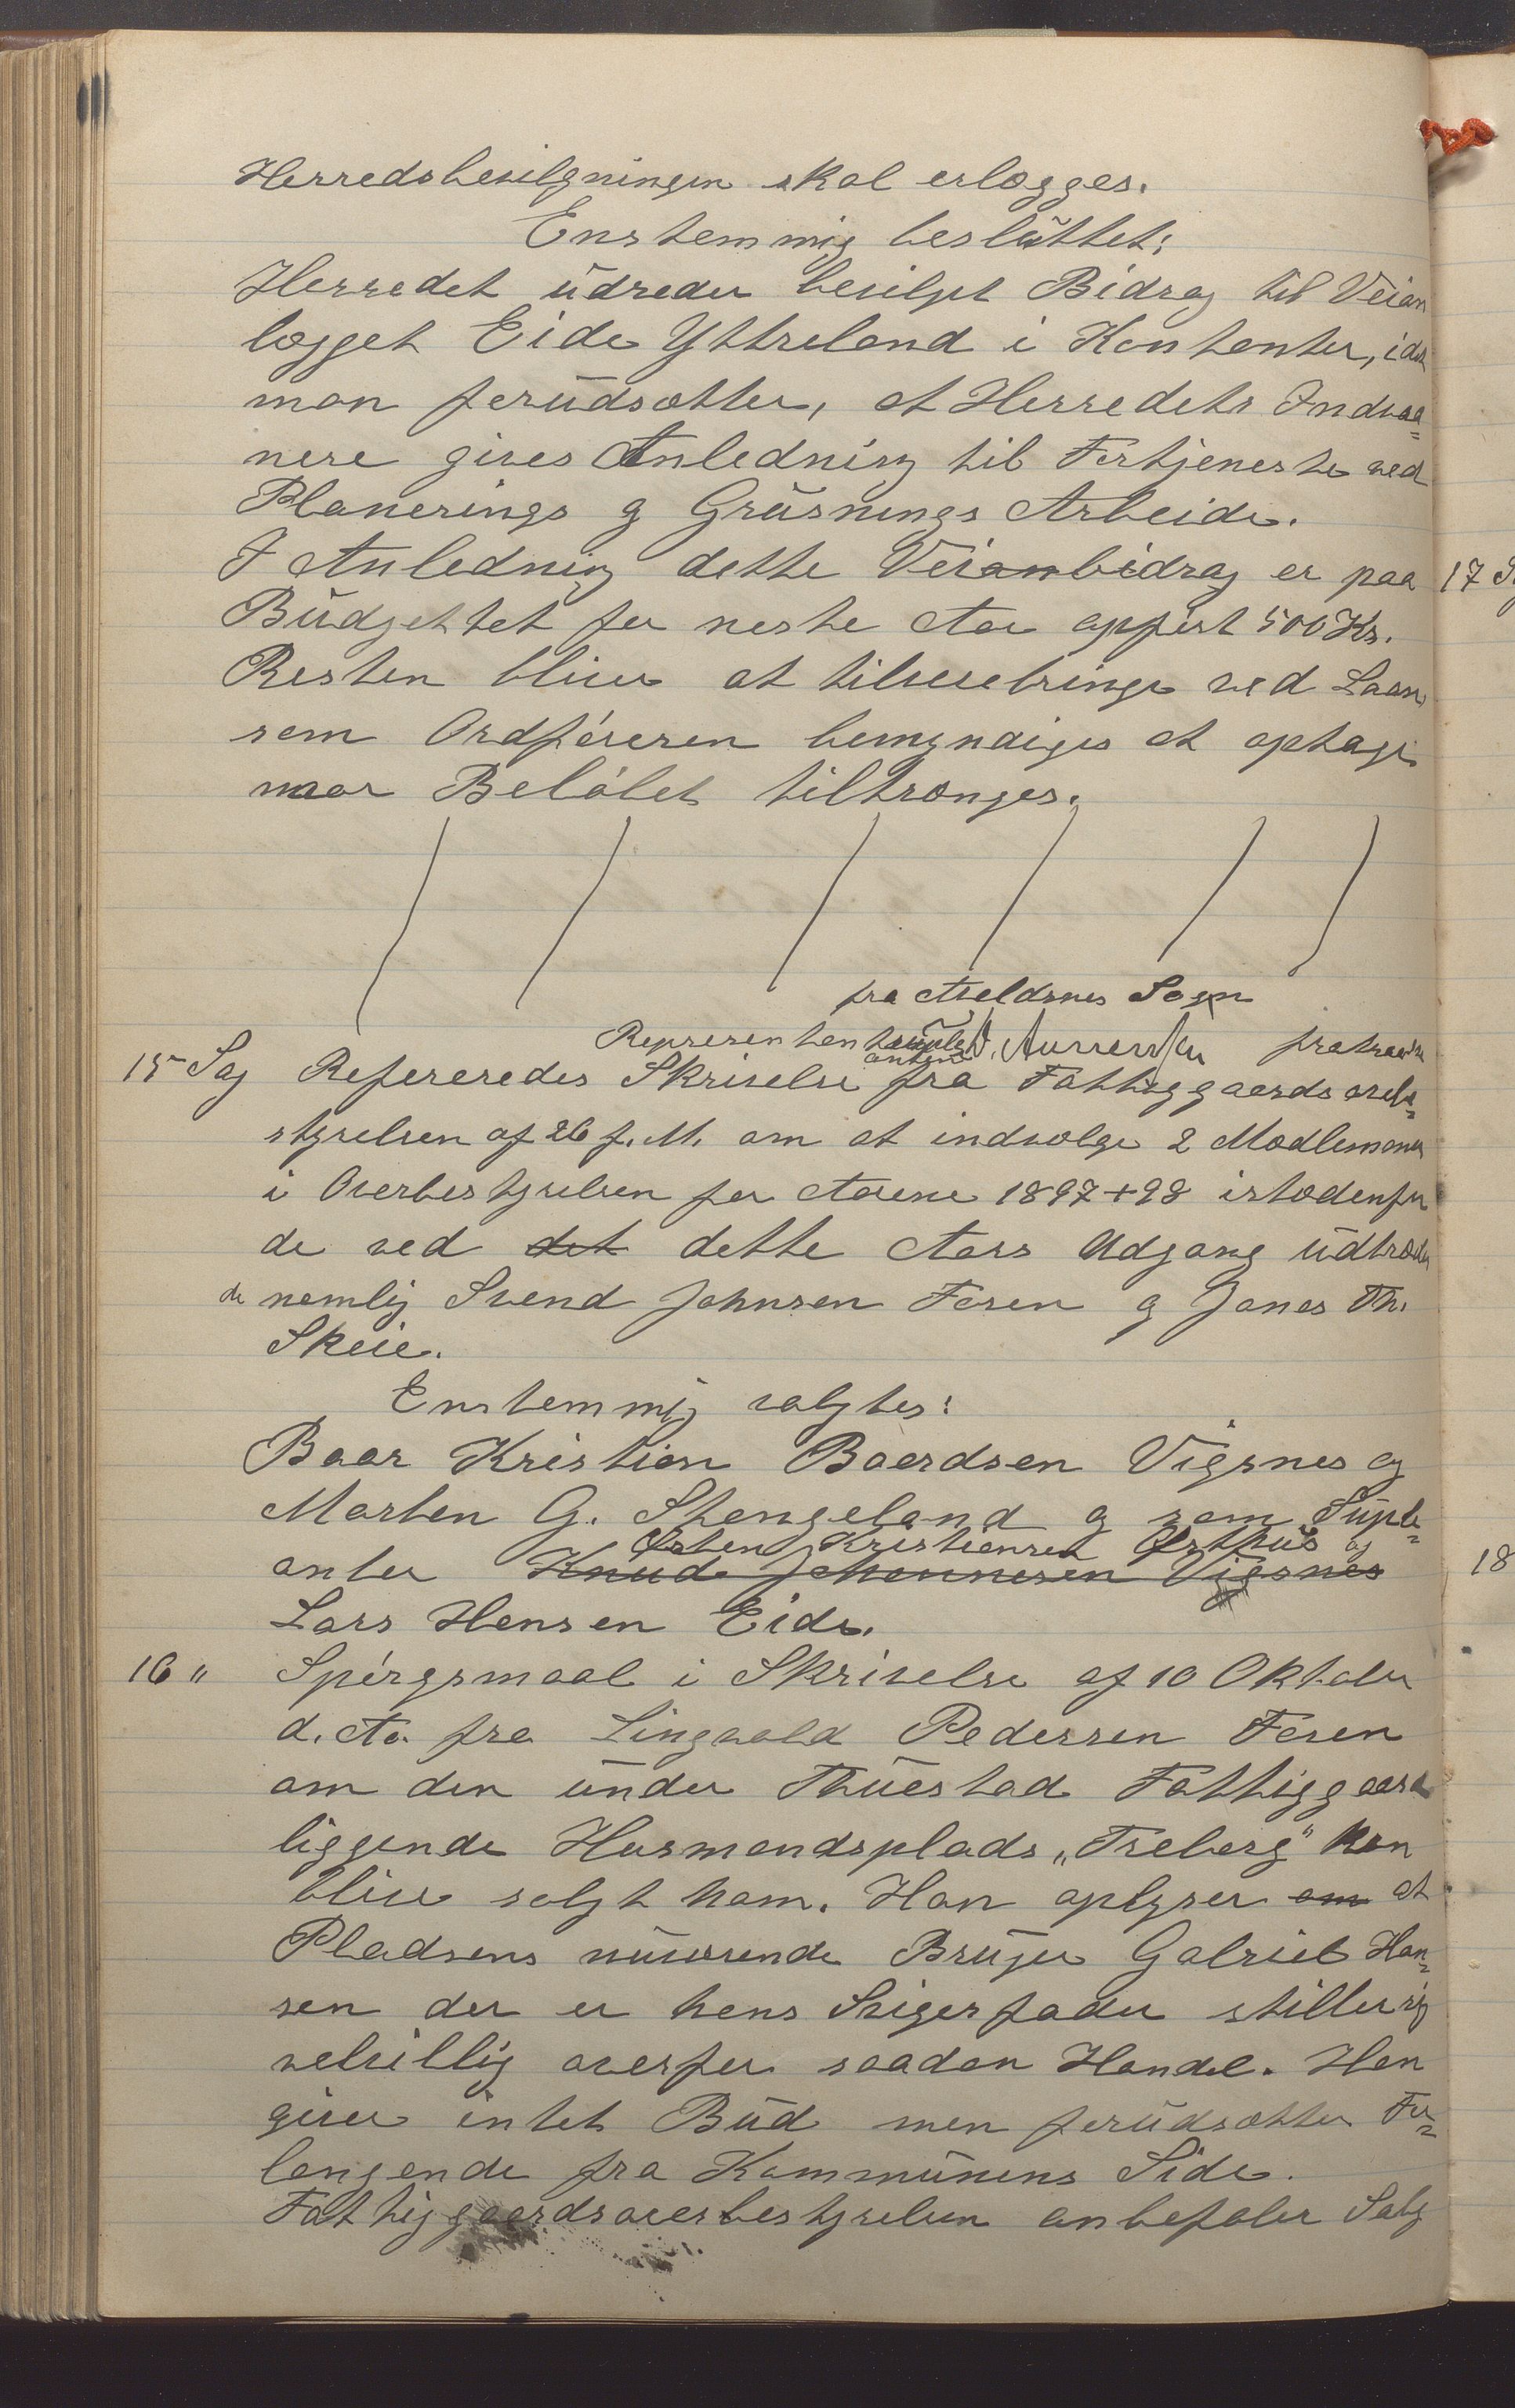 Herredsbevilgningen skal erlægges.
Enstemmig besluttet:
Herredet udreder bevilget Bidrag til Veian
lægget Eide Yttreland i Kontanter, idet
man forudsætter, at Herredets Indvaa=
nere gives Anledning til Fortjeneste ved
Planerings og Grusnings Arbeide.
I Anledning dette Veianbidrag er paa
Budgettet for neste Aar opført 500 Kr.
Resten bliver at tilveiebringe ved Laan,
som Ordføreren bemyndiges at optage
naar Beløbet tiltrænges.
fra Avaldsnes Sogn
Representant fratraadte
15 Sag Refereredes Skrivelse fra Fattiggaardsover=
styrelsen af 26 f. M. om at indvælge 2 Medlemmer
i Overbestyrelsen for Aarene 1897+98 istedenfor
de ved det dette Aars Udgang udtræden
de nemlig Svend Johnsen Fosen og Jonas Th.
Skeie.
Enstemmig valgtes:
Baar Kristian Baardsen Vigsnes og
Morten G. Stangeland og som Suple=
Østen Kristiansen Østhus og
anter Knud Johannesen Vigsnes
Lars Hansen Eide.
16 " Spørgsmaal i Skrivelse af 10 Oktober
d. A. fra Lingvald Pedersen Fosen
om den under Thuestad Fattiggaard
liggende Husmandsplads „Treberg" kan
blive solgt ham. Han oplyser om at
Pladsens nuværende Bruger Gabriel Han=
sen der er hans Svigerfader stiller sig
velvillig overfor saadan Handel. Han
giver intet Bud men forudsætter For=
langende fra Kommunens Side.
Fattiggaardsoverbestyrelsen anbefaler Salg
17 S
18